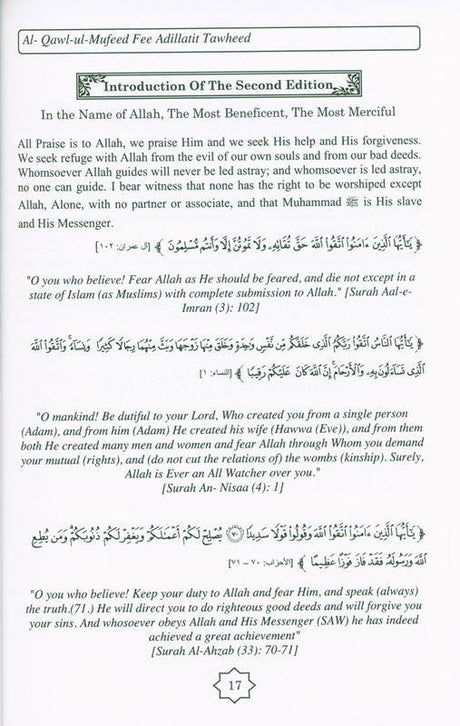 Al- Qawl-ul-Mufeed Fee Adillatit Tawheed
Introduction Of The Second Edition
In the Name of Allah, The Most Beneficent, The Most Merciful
All Praise is to Allah, we praise Him and we seek His help and His forgiveness.
We seek refuge with Allah from the evil of our own souls and from our bad deeds.
Whomsoever Allah guides will never be led astray; and whomsoever is led astray,
no one can guide. I bear witness that none has the right to be worshiped except
Allah, Alone, with no partner or associate, and that Muhammad ﷺ is His slave
and His Messenger.
﴿ يَٰٓأَيُّهَا ٱلَّذِينَ ءَامَنُوا۟ ٱتَّقُوا۟ ٱللَّهَ حَقَّ تُقَاتِهِۦ وَلَا تَمُوتُنَّ إِلَّا وَأَنتُم مُّسْلِمُونَ ﴾ [آل عمران: ١٠٢]
"O you who believe! Fear Allah as He should be feared, and die not except in a
state of Islam (as Muslims) with complete submission to Allah." [Surah Aal-e-
Imran (3): 102]
﴿ يَٰٓأَيُّهَا ٱلنَّاسُ ٱتَّقُوا۟ رَبَّكُمُ ٱلَّذِى خَلَقَكُم مِّن نَّفْسٍ وَٰحِدَةٍ وَخَلَقَ مِنْهَا زَوْجَهَا وَبَثَّ مِنْهُمَا رِجَالًا كَثِيرًا وَنِسَآءً ۚ وَٱتَّقُوا۟ ٱللَّهَ
ٱلَّذِى تَسَآءَلُونَ بِهِۦ وَٱلْأَرْحَامَ ۚ إِنَّ ٱللَّهَ كَانَ عَلَيْكُمْ رَقِيبًا ﴾ [النساء: ١]
"O mankind! Be dutiful to your Lord, Who created you from a single person
(Adam), and from him (Adam) He created his wife (Hawwa (Eve)), and from them
both He created many men and women and fear Allah through Whom you demand
your mutual (rights), and (do not cut the relations of) the wombs (kinship). Surely,
Allah is Ever an All Watcher over you."
[Surah An- Nisaa (4): 1]
﴿ يَٰٓأَيُّهَا ٱلَّذِينَ ءَامَنُوا۟ ٱتَّقُوا۟ ٱللَّهَ وَقُولُوا۟ قَوْلًا سَدِيدًا ٧٠ يُصْلِحْ لَكُمْ أَعْمَٰلَكُمْ وَيَغْفِرْ لَكُمْ ذُنُوبَكُمْ ۗ وَمَن يُطِعِ
ٱللَّهَ وَرَسُولَهُۥ فَقَدْ فَازَ فَوْزًا عَظِيمًا ﴾ [الأحزاب: ٧٠ – ٧١]
"O you who believe! Keep your duty to Allah and fear Him, and speak (always)
the truth.(71.) He will direct you to do righteous good deeds and will forgive you
your sins. And whosoever obeys Allah and His Messenger (SAW) he has indeed
achieved a great achievement"
[Surah Al-Ahzab (33): 70-71]
17